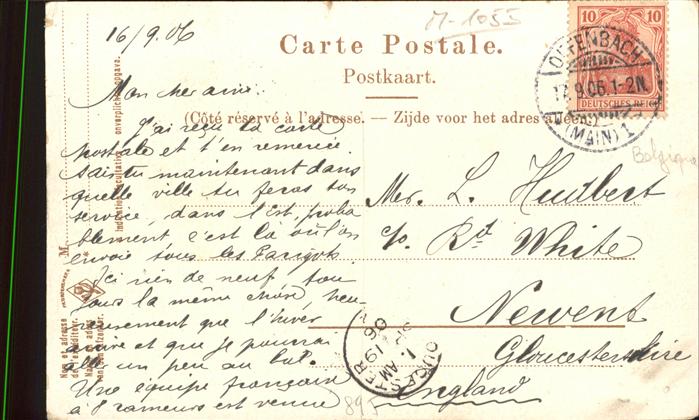 M-1055
16/9.06
Carte Postale.
Postkaart.
(Côté réservé à l'adresse. — Zijde voor het adres
Mon cher ami.
J'ai reçu ta carte
postale et t'en remercie
sais du maintenant dans
quelle ville tu feras ton
service, dans l'est, proba
blement, c'est là où l'on
envoie tous les Parigots.
Ici rien de neuf, tou
jours la même chose, heu
reusement que l'hiver
arrive et que je pourrai
aller un peu au bal.
Une équipe française
à rameurs est venue
Mer. L. Hudbert
c/o Rd White
Newent
Gloucestershire
England
10 10
DEUTSCHES REICH
OFFENBACH
17.9.06.1-2N.
(MAIN) 1
Belgique
GLOUCESTER
1. AM
SP 19
06
Indication facultative
onverplichte opgave.
Nom et adresse
de l'éditeur.
Naam en adres
895